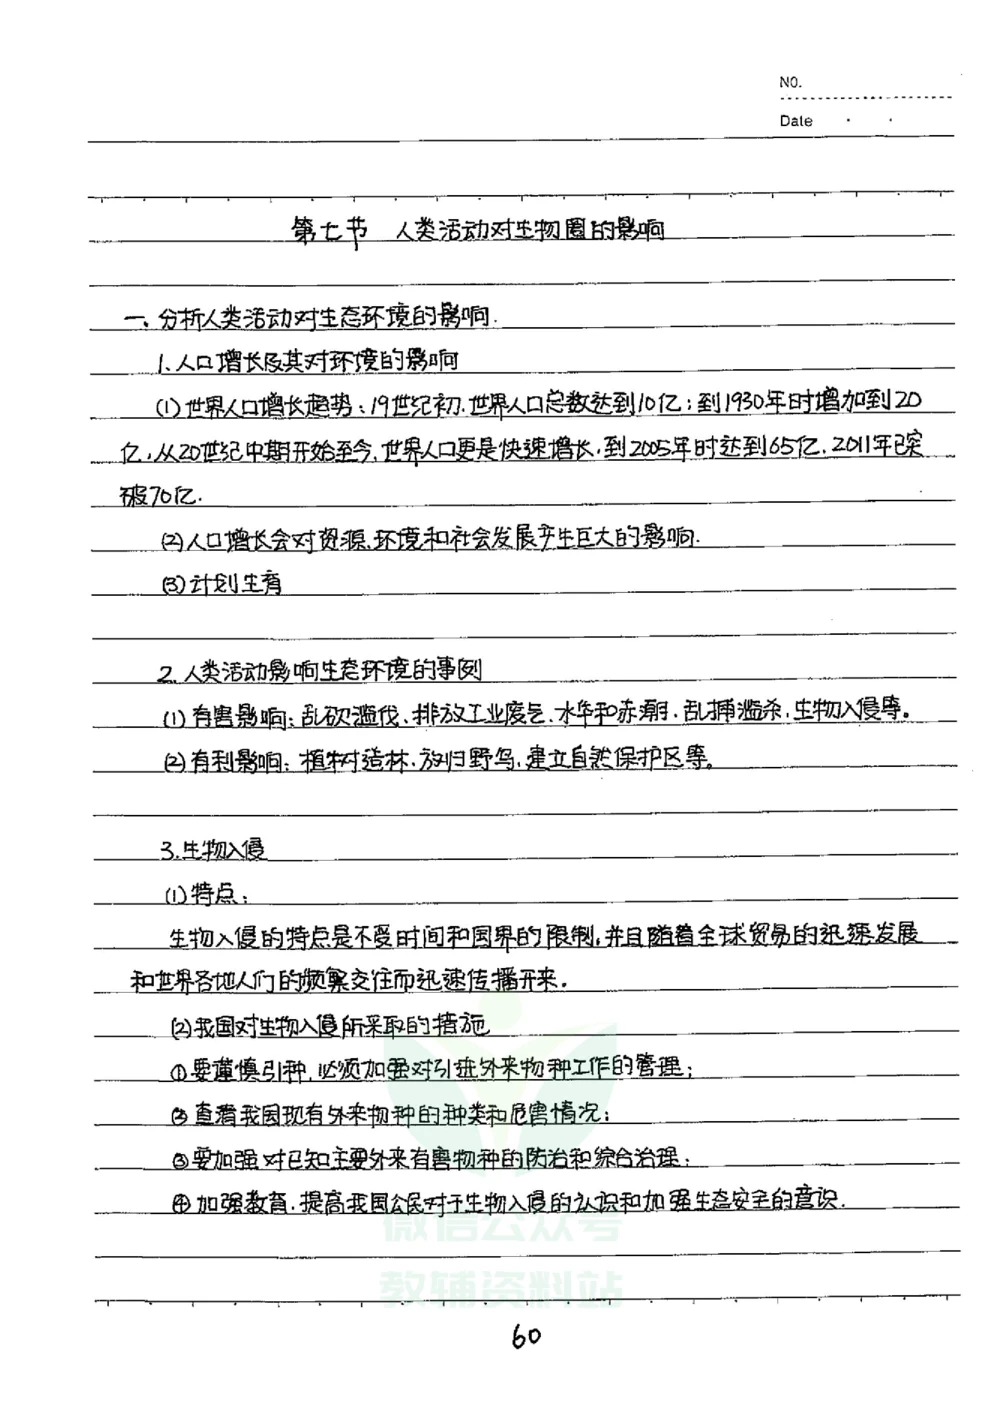 NO.
Date
第七节 人类活动对生物圈的影响
一、分析人类活动对生态环境的影响.
1、人口增长及其对环境的影响
(1)世界人口增长趋势:19世纪初,世界人口总数达到10亿;到1930年时增加到20
亿,从20世纪中期开始至今,世界人口更是快速增长,到2005年时达到65亿,2011年已突
破70亿.
(2)人口增长会对资源、环境和社会发展产生巨大的影响.
(3)计划生育
2.人类活动影响生态环境的事例
(1)有害影响:乱砍滥伐、排放工业废气、水华和赤潮、乱捕滥杀、生物入侵等。
(2)有利影响:植树造林、放归野鸟、建立自然保护区等。
3.生物入侵
(1)特点:
生物入侵的特点是不受时间和国界的限制,并且随着全球贸易的迅速发展
和世界各地人们的频繁交往而迅速传播开来.
(2)我国对生物入侵所采取的措施
①要谨慎引种,必须加强对引进外来物种工作的管理;
②查清我国现有外来物种的种类和危害情况;
③要加强对已知主要外来有害物种的防治和综合治理;
④加强教育,提高我国公民对于生物入侵的认识和加强生态安全的意识.
微信公众号
教辅资料站
60